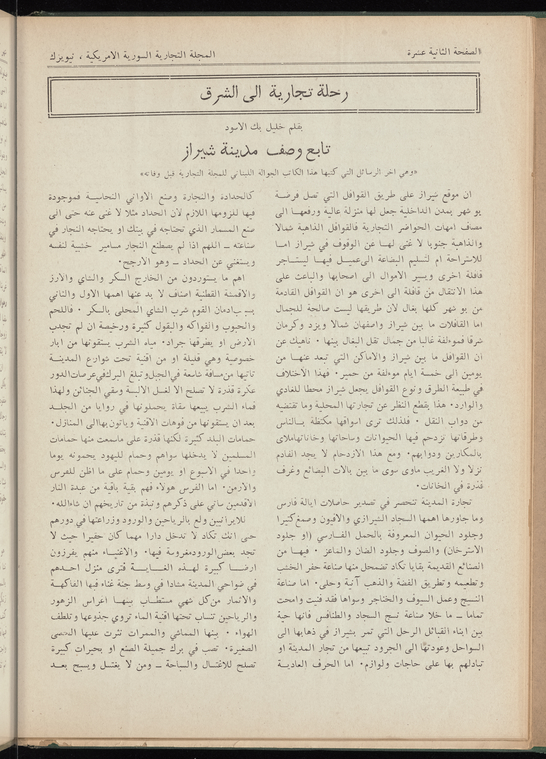 الصفحة الثانية عشرة
المجلة التجارية السورية الامريكية ، نيويرك
رحلة تجارية الى الشرق
بقلم خليل بك الاسود
تابع وصف مدينة شيراز
«وهي اخر الرسائل التي كتبها هذا الكاتب الجوالة اللبناني للمجلة التجارية قبل وفاته»
ان موقع شيراز على طريق القوافل التي تصل فرضة
بو شهر بمدن الداخلية جعل لها منزلة عالية ورفعها الى
مصاف امهات الحواضر التجارية فالقوافل الذاهبة شمالا
والذاهبة جنوبا لا غنى لها عن الوقوف في شيراز اما
للاستراحة ام لتسليم البضاعة الى عميل فيها ليستاجر
قافلة اخرى ويسير الاموال الى اصحابها والباعث على
هذا الانتقال من قافلة الى اخرى هو ان القوافل القادمة
من بو شهر كلها بغال لان طريقها ليست صالحة للجمال
اما القافلات ما بين شيراز واصفهان شمالا ويزد وكرمان
شرقا فمولفة غالبا من جمال تقل البغال بينها . ناهيك عن
ان القوافل ما بين شيراز والاماكن التي تبعد عنها من
يومين الى خمسة ايام مولفة من حمير . فهذا الاختلاف
في طبيعة الطرق ونوع القوافل يجعل شيراز محطا للغادي
والوارد. هذا بقطع النظر عن تجارتها المحلية وما تقتضيه
من دواب النقل . فلذلك ترى اسواقها مكتظة بالناس
وطرقاتها تزدحم فيها الحيوانات وساحاتها وخاناتها ملاى
بالمكارين ودوابهم . ومع هذا الازدحام لا يجد القادم
نزلا ولا الغريب ماوى سوى ما بين بالات البضائع وغرف
قذرة في الخانات.
تجارة المدينة تنحصر في تصدير حاصلات ايالة فارس
وما جاورها اهمها السجاد الشيرازي والافيون وصمغ كثيرا
وجلود الحيوان المعروفة بالحمل الفارسي (او جلود
الاسترخان) والصوف وجلود الضان والماعز . فيها من
الصنائع القديمة بقايا تكاد تضمحل منها صناعة حفر الخشب
وتطعيمه وتطريق الفضة والذهب آنية وحلى. اما صناعة
النسيج وعمل السيوف والخناجر وسواها فقد فنيت وامحت
تماما — ما خلا صناعة نسج السجاد والطنافس فانها حية
بين ابناء القبائل الرحل التي تمر بشيراز في ذهابها الى
السواحل وعودتها الى الجرود تبيعها من تجار المدينة او
تبادلهم بها على حاجات ولوازم. اما الحرف العادية
كالحدادة والنجارة وصنع الاواني النحاسية فموجودة
فيها للزومها اللازم لان الحداد مثلا لا غنى عنه حتى الى
صنع المسمار الذي تحتاجه في بيتك او يحتاجه النجار في
صناعته — اللهم اذا لم يصطنع النجار مسامير خشبية لنفسه
ويستغني عن الحداد — وهو الارجح.
اهم ما يستوردون من الخارج السكر والشاي والارز
والاقمشة القطنية اصناف لا يد عنها اهمها الاول والثاني
القوم شرب الشاي المحلى بالسكر . فاللحم
والحبوب والفواكه والبقول كثيرة ورخيصة ان لم تجدب
الارض او يطرقها جراد. مياه الشرب يستقونها من ابار
خصوصية وهي قليلة او من اقنية تحت شوارع المدينة
تاتيها من مسافة شاسعة في الجبل وتبلغ البرك في عرصات الدور
عكرة قذرة لا تصلح الا لغسل الالبسة وسقي الجنائن ولهذا
فماء الشرب يبيعها سقاة يحملونها في روايا من الجلد
بعد ان يستقونها من فوهات الاقنية وياتون بها الى المنازل.
حمامات البلد كثيرة لكنها قذرة على ماسمعت منها حمامات
المسلمين لا يدخلها سواهم وحمام لليهود يحمونه يوما
واحدا في الاسبوع او يومين وحمام على ما اظن للفرس
والارمن. اما الفرس هولاء فهم بقية باقية من عبدة النار
الاقدمين ساتي على ذكرهم ونبذة من تاريخهم ان شاءالله.
للايرانيين ولع بالرياحين والورود وزراعتها في دورهم
حتى انك تكاد لا تدخل دارا مهما كان حقيرا حيث لا
تجد بعض الورود مغروسة فيها. والاغنياء منهم يفرزون
ارضا كبيرة لهذه الغاية فترى منزل احدهم
في ضواحي المدينة مشادا في وسط جنة غناء فيها الفاكهة
والاثمار من كل شهي مستطاب بينها اغراس الزهور
والرياحين تنساب تحتها اقنية الماء تروي جذوعها وتلطف
الهواء . بينها المماشي والممرات تثرت عليها الحصى
الصغيرة. تصب في برك جميلة الصنع او بحيرات كبيرة
تصلح للاغتسال والسباحة — ومن لا يغتسل ويسبح بعد